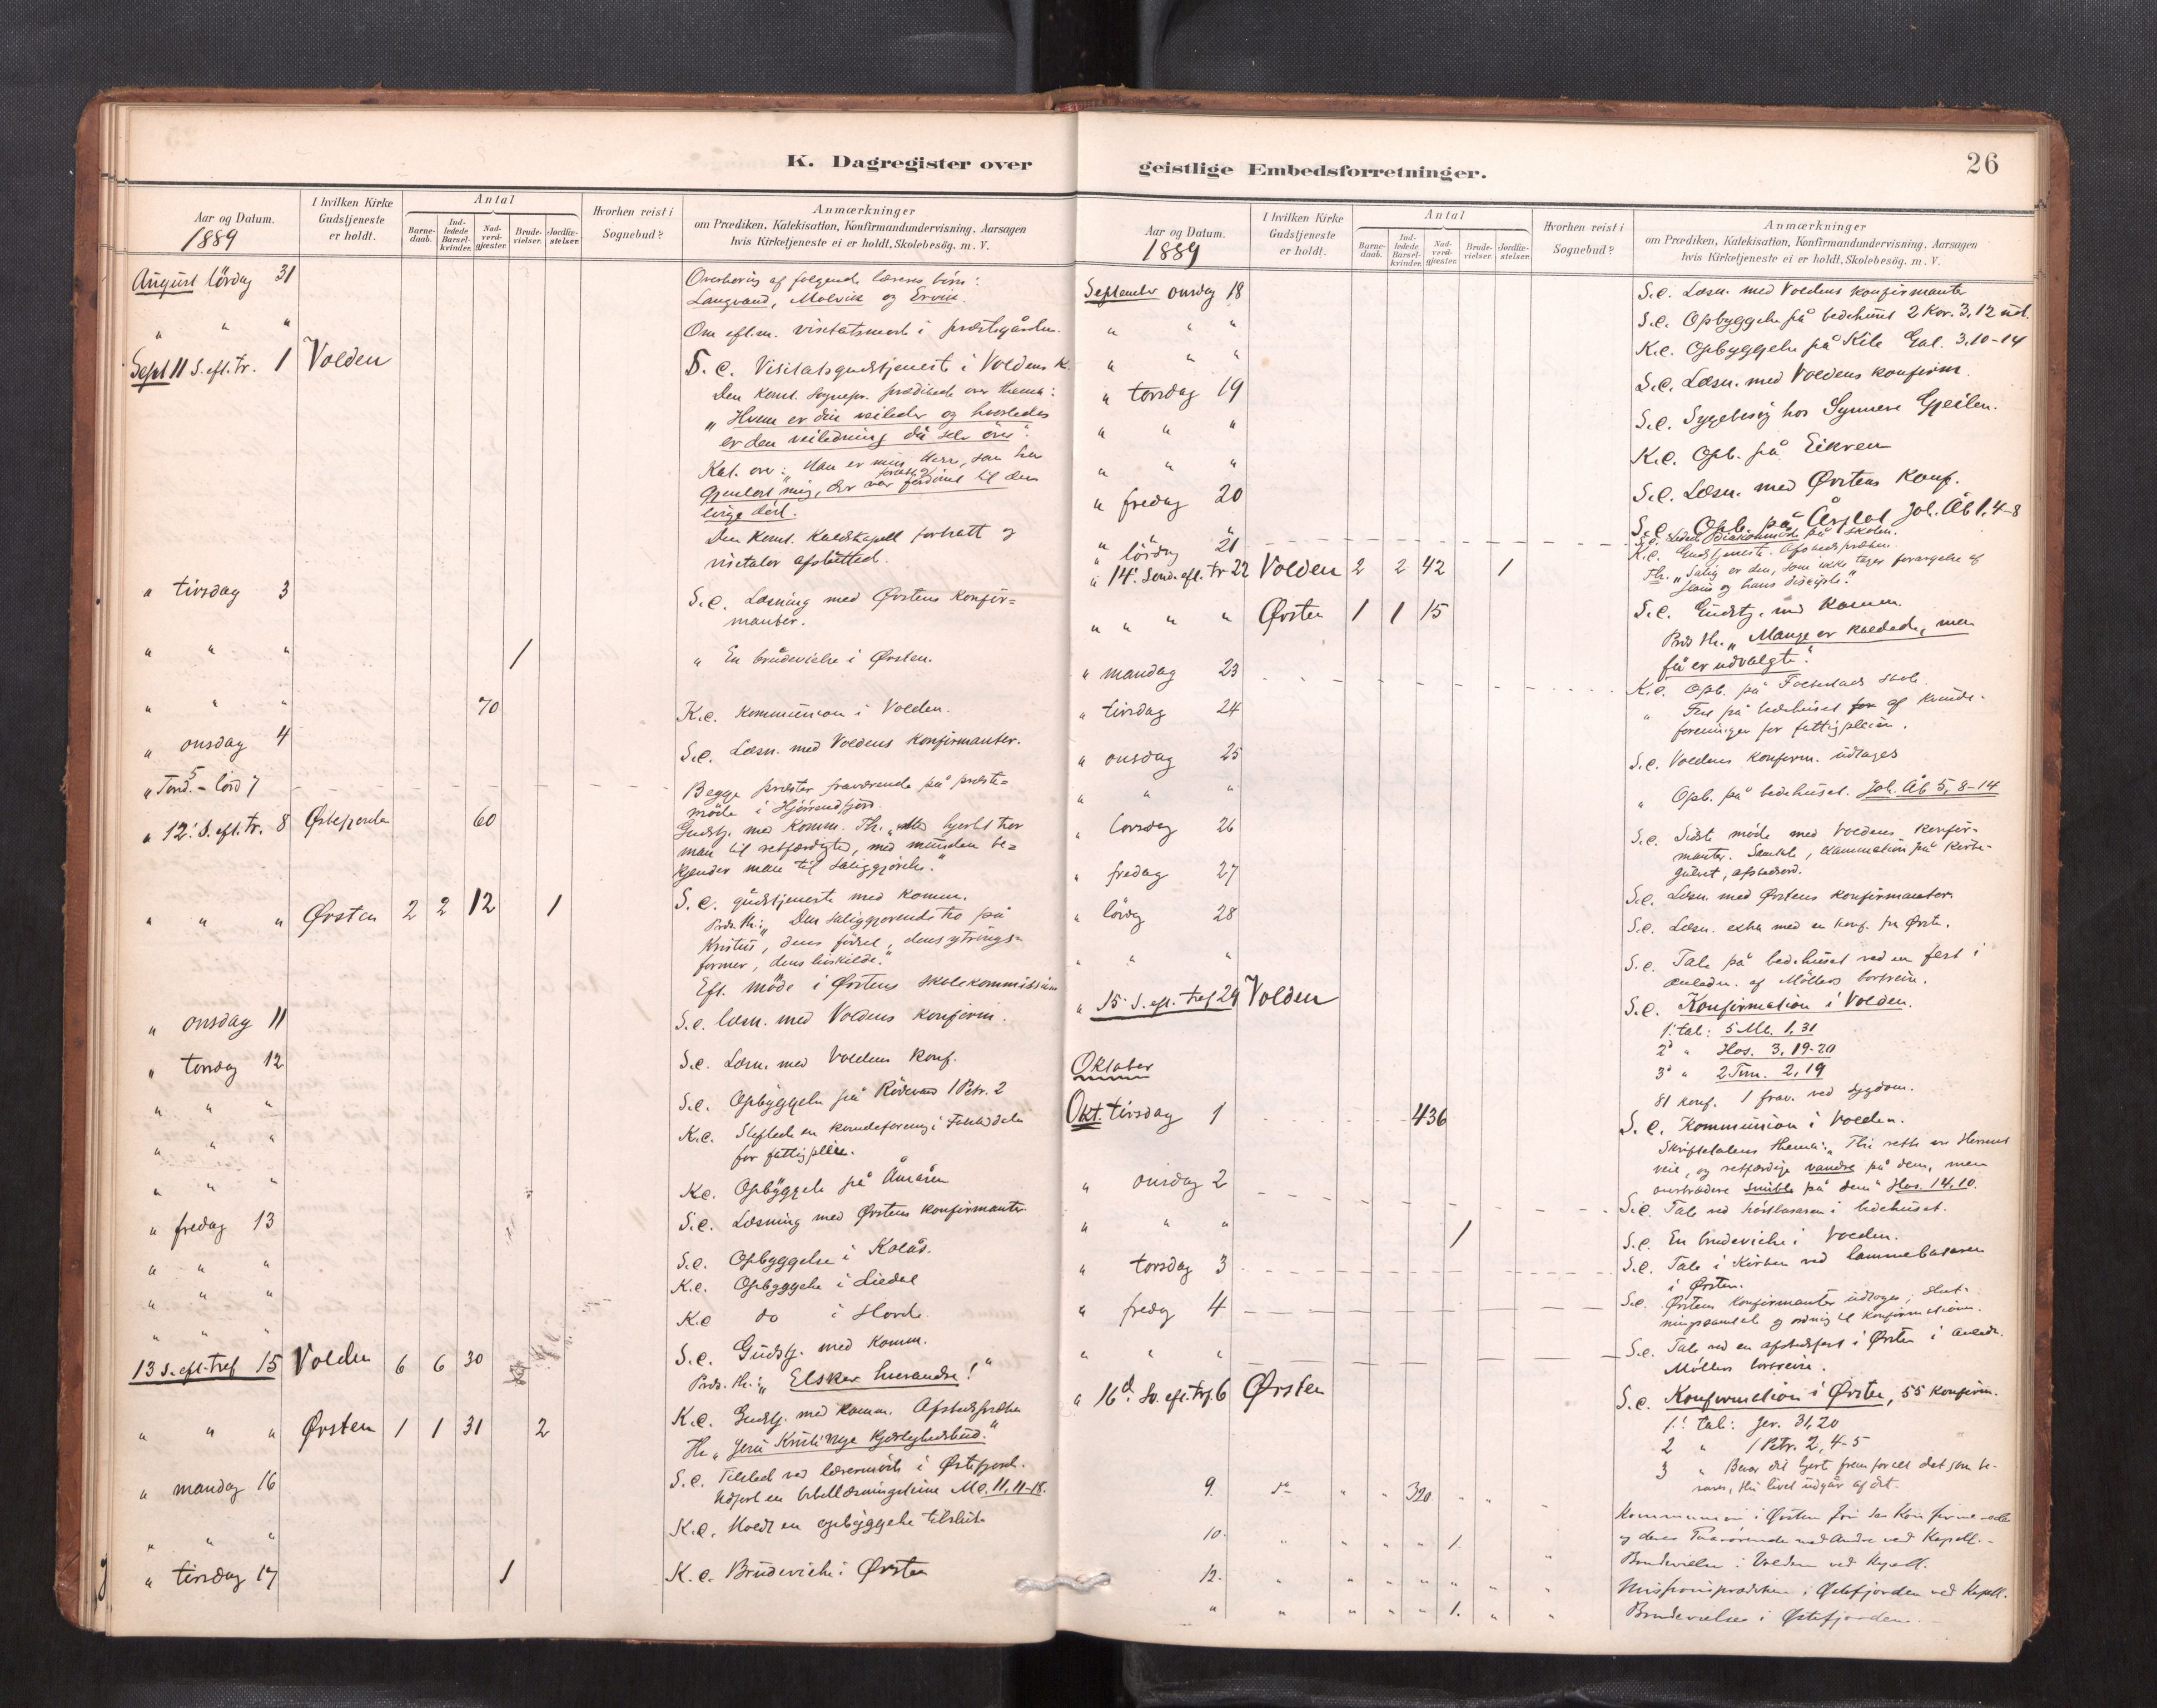 K. Dagregister over
Aar og Datum. I hvilken Kirke Gudstjeneste er holdt. Antal Barne-daab. Ind-ledede Barsel-kvinder. Nad-verd-gjæster. Brude-vielser. Jordfæ-stelser. Hvorhen reist i Sognebud? Anmærkninger
om Prædiken, Katekisation, Konfirmandundervisning, Aarsagen
hvis Kirketjeneste ei er holdt, Skolebesög. m. V.
1889
August lördag 31 Overhøring af følgende læreres börn:
Langvand, Molvik og Ervik.
" " " Om eft.m. visitatsmøde i præstegården.
Sept 11 S. eft. tr. 1 Volden S. e. Visitatsgudstjeneste i Voldens K.
Den konst. sognepr. prædikede over thema:
"Hvem er din veileder og hvorledes
er den veiledning du selv över".
Kat. over: "Han er min Herre, som har
gjenløst mig, der var fordömt til den
evige död.
Den konst. Kaldskapell. fortsatt og
visitator afsluttet.
" tirsdag 3 S. e. Læsning med Ørstens konfir=
manter.
" " " 1 " En brudevielse i Ørsten.
" " " 70 K. c. Kommunion i Volden.
" onsdag 4 S. e. Læsn. med Voldens konfirmanter.
" Torsd. 5 - lörd 7 Begge præster fraværende på præste=
möde i Hjörundfjord.
" 12. S. eft. tr. 8 Østefjorden 60 Gudstj. med Komm. Th. "Med hjertet tror
man til retfærdighed, med munden be=
kjender man til saliggjörelse."
" " " Ørsten 2 2 12 1 S. e. gudstjeneste med komm.
Præd. th.: "Den saliggjørende tro på
Kristus, dens födsel, dens ytrings=
former, dens livskilde."
Eft. möde i Ørstens skolekommission
" onsdag 11 S. e. læsn. med Voldens konfirm.
" torsdag 12 S. e. Læsn. med Voldens konf.
" " " S. e. Opbyggelse på Rödven 1 Petr. 2
" " " K. c. Stiftede en kvindeforening i Folkestaddalen
for fattigpleie.
" " " K. c. Opbyggelse på Åmåsen
" fredag 13 S. e. Læsning med Ørstens konfirmanter
" " " S. e. Opbyggelse i Kolås.
" " " K. c. Opbyggelse i Liedal
" " " K. c do i Hovde
13 S. eft. tref 15 Volden 6 6 30 S. e. Gudstj. med komm.
Præd. th.: "Elsker hverandre!"
" " " Ørsten 1 1 31 2 K. c. Gudstj. med komm. Afskedspræken
Th. "Jesu Kristi nye kjærlighedsbud."
" mandag 16 S. e. Tilsted ved lærermöde i Østefjord.
Udfört en bibellæsningstime Mt. 11, 11-18.
" " " K. c. Holdt en opbyggelse tilslut
" tirsdag 17 1 K. c. Brudevielse i Ørsten
geistlige Embedsforretninger.
26
Aar og Datum. I hvilken Kirke Gudstjeneste er holdt. Antal Barne-daab. Ind-ledede Barsel-kvinder. Nad-verd-gjæster. Brude-vielser. Jordfæ-stelser. Hvorhen reist i Sognebud? Anmærkninger
om Prædiken, Katekisation, Konfirmandundervisning, Aarsagen
hvis Kirketjeneste ei er holdt, Skolebesög. m. V.
1889
September onsdag 18 S. e. Læsn. med Voldens konfirmanter
" " " S. e. Opbyggelse på bedehuset 2 Kor. 3, 12 ud.
" " " K. c. Opbyggelse på Kile Gal. 3, 10-14
" torsdag 19 S. e. Læsn. med Voldens konfirm.
" " " S. e. Sygebesög hos Synnøve
" " " K. c. Opb. på Eikrem
" fredag 20 S. e. Læsn. med Ørstens konf.
" " " S. e. Opb. på Årflot Joh. Åb 1, 4-8
" lördag 21 S. e. på skolen.
" 14. Sönd. eft. tr 22 Volden 2 2 42 1 K. c. Gudstjeneste. Afskedspræken.
Th. "Salig er den, som ikke tager forargelse af
Jesus og hans disciple."
" " " " Ørsten 1 1 15 S. e. Gudstj. med komm.
Præd. th. "Mange er kaldede, men
få er udvalgte."
" mandag 23 K. c. Opb. på Folkestads skole
" tirsdag 24 " Fest på bedehuset af kvinde-
foreningen for fattigpleien.
" onsdag 25 S. e. Voldens konfirm. udtages
" " " " Opb. på bedehuset. Joh. Åb 5, 8-14
" torsdag 26 S. e. Sidste möde med Voldens konfir-
manter. Samtale, examination på kirke-
gulvet, afskedsord.
" fredag 27 S. e. Læsn. med Ørstens konfirmanter.
" lördag 28 S. e. Læsn. extra med en konf. fra Ørsten.
" " " S. e. Tale på bedehuset ved en fest i
anledn. af Möllers bortreise.
" 15. S. eft. tref 29 Volden S. e. Konfirmation i Volden.
1. tal: 5 Mb. 1, 31
2. " Hos. 3, 19-20
3. " 2 Tim. 2, 19
81 konf. 1 frav. ved sygdom.
Oktober
Okt. tirsdag 1 436 S. e. Kommunion i Volden.
Skriftetalens thema: "Thi rette er Herrens
veie, og retfærdige vandre på dem, men
overtrædere snuble på dem" Hos. 14, 10.
" onsdag 2 S. e. Tale ved höstbasaren i bedehuset.
" " " 1 S. e. En brudevielse i Volden.
" torsdag 3 S. e. Tale i Kirken ved lammebasaren
i Ørsten.
" fredag 4 S. e. Ørstens konfirmanter udtoges, slut-
ningssamtale og ordning til konfirmationen.
" " " S. e. Tale ved en afskedsfest i Ørsten i anledn.
Möllers bortreise.
" 16d. Sö. eft. trf. 6 Ørsten S. e. Konfirmation i Ørsten, 55 konfirm.
1. tal: Jer. 31, 20
2 " 1 Petr. 2, 4-5
3 " Bevar dit hjerte frem for alt det som be-
vares, thi livet udgår af det.
9. do " " 320 " " Kommunion i Ørsten for de Konfirmerede
og deres Paarørende med Andre ved Kapell. -
10. " " " " 1. " Brudevielse i Volden ved Kapell.
12. " " " " " " " Missionsprædiken i Østefjorden ved Kapell.
" " " " " 1. " " Brudevielse i Østefjorden. -